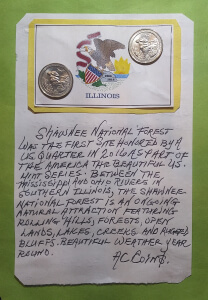 ILLINOIS
SHAWNEE NATIONAL FOREST
WAS THE FIRST SITE HONORED BY A
US QUARTER IN 2016 AS PART OF
THE AMERICA THE BEAUTIFUL US.
MINT SERIES. BETWEEN THE
MISSISSIPPI AND OHIO RIVERS IN
SOUTHERN ILLINOIS, THE SHAWNEE
NATIONAL FOREST IS AN ONGOING
NATURAL ATTRACTION FEATURING
ROLLING HILLS, FORESTS, OPEN
LANDS, LAKES, CREEKS AND RUGGED
BLUFFS. BEAUTIFUL WEATHER YEAR
ROUND.